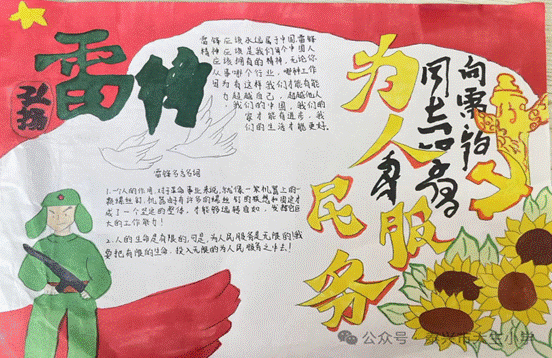 弘扬
雷锋
雷锋应该永远属于中国,雷锋
精神应该是我们每个中国人
应该拥有的精神,无论你
从事哪个行业,哪种工作
因为有这样我们才能有能
力超越自己,超越他人
我们的中国,我们的
家才能有进步,我
们的生活才能更好。
雷锋名言名词
1.一个人的作用,对于革命事业来说,就像一架机器上的一
颗螺丝钉,机器由于有许多的螺丝钉的联想和固定才
成了一个坚定的整体,才能够运转自如,发挥它巨
大的工作能力!
2.人的生命是有限的,可是,为人民服务是无限的!我
要把有限的生命,投入无限的为人民服务之中去!
为人民服务
向雷锋
同志学习
公众号·宜兴市天生小学